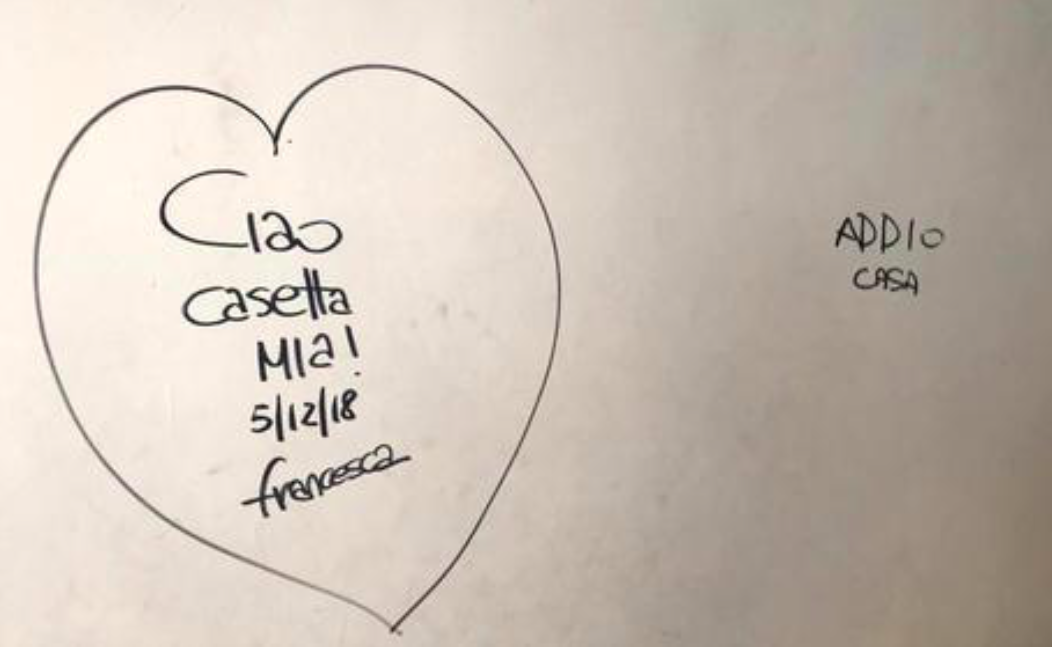 Ciao
casetta
Mia!
5/12/18
francesca
ADDIO
CASA